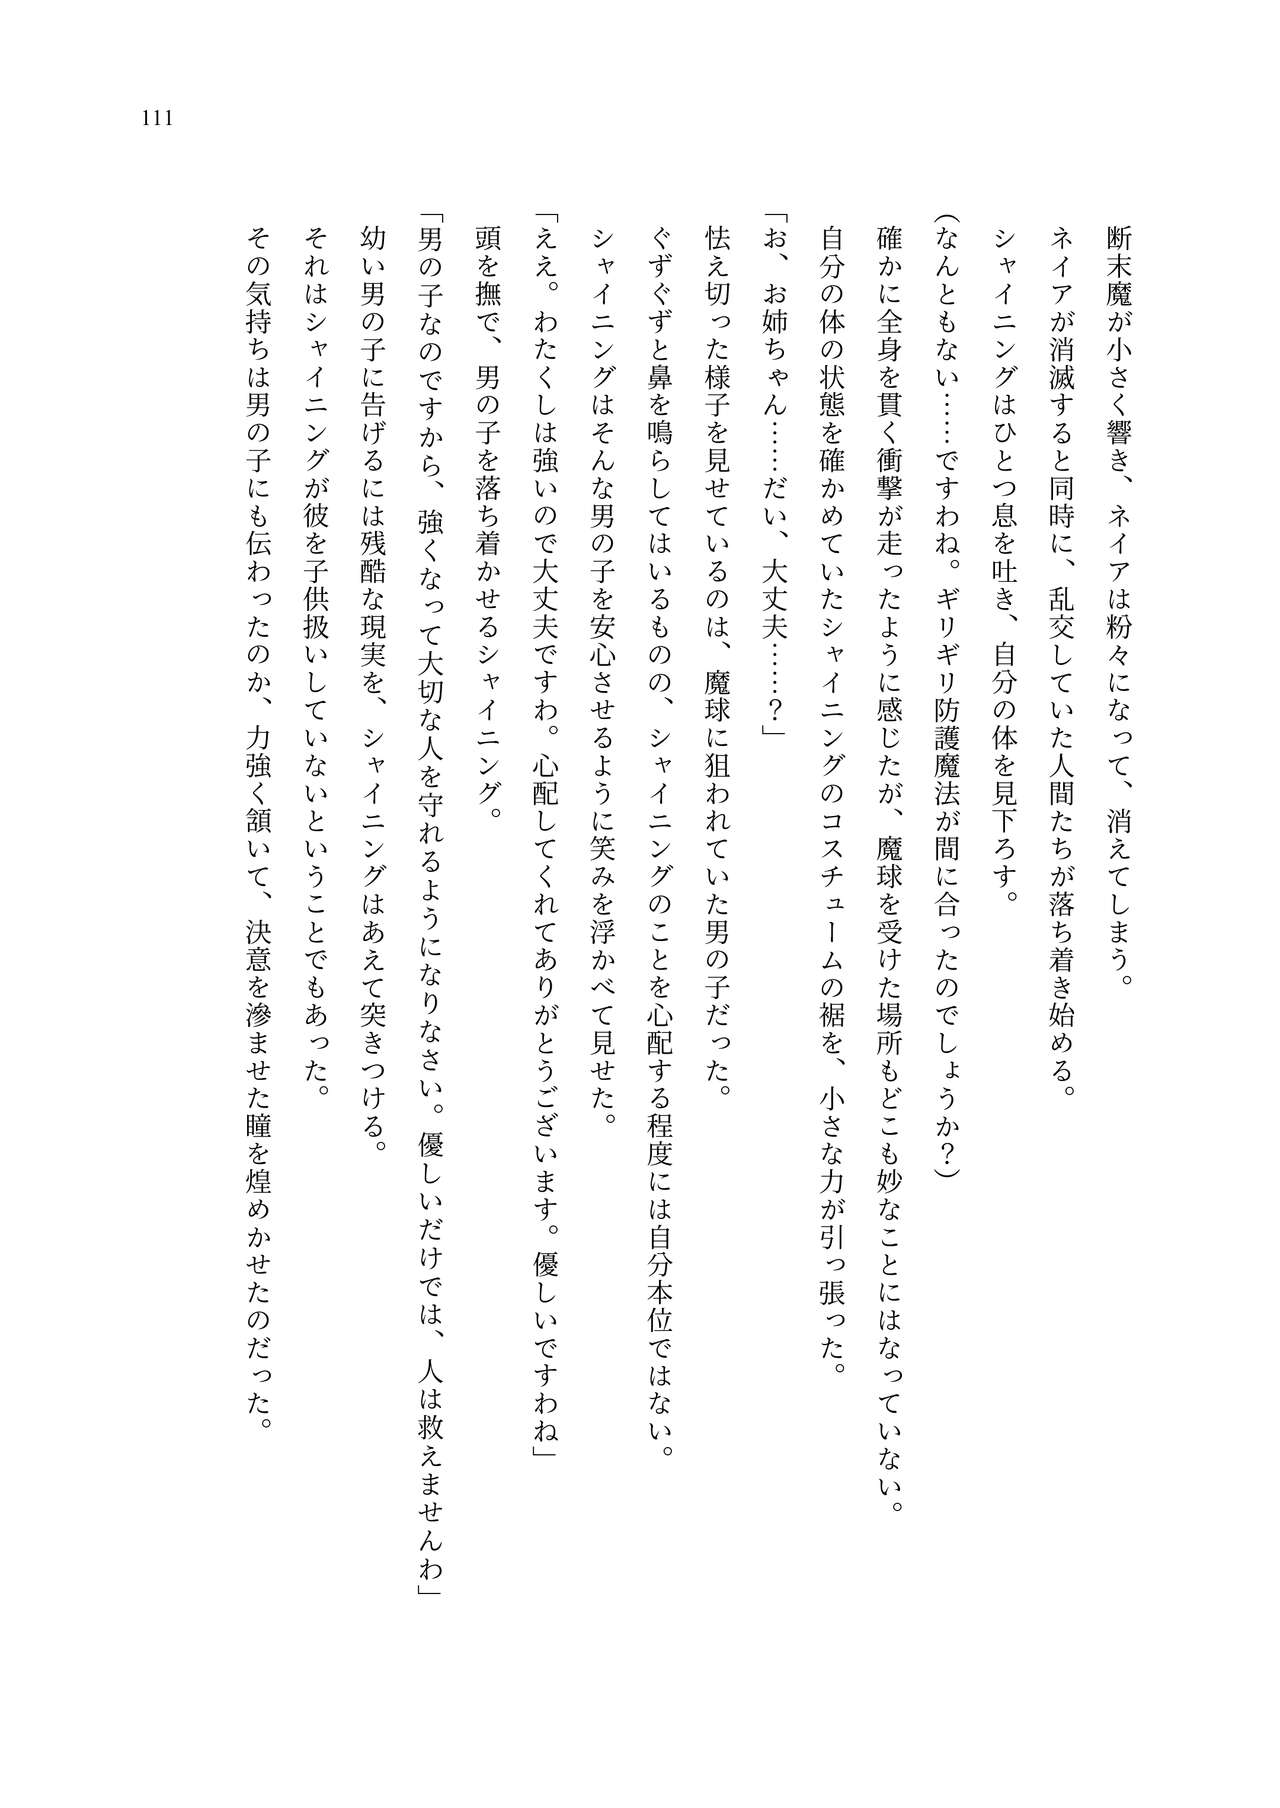 111
断末魔が小さく響き、ネイアは粉々になって、消えてしまう。
ネイアが消滅すると同時に、乱交していた人間たちが落ち着き始める。
シャイニングはひとつ息を吐き、自分の体を見下ろす。
(なんともない……ですわね。ギリギリ防護魔法が間に合ったのでしょうか？)
確かに全身を貫く衝撃が走ったように感じたが、魔球を受けた場所もどこも妙なことにはなっていない。
自分の体の状態を確かめていたシャイニングのコスチュームの裾を、小さな力が引っ張った。
「お、お姉ちゃん……だい、大丈夫……？」
怯え切った様子を見せているのは、魔球に狙われていた男の子だった。
ぐずぐずと鼻を鳴らしてはいるものの、シャイニングのことを心配する程度には自分本位ではない。
シャイニングはそんな男の子を安心させるように笑みを浮かべて見せた。
「ええ。わたくしは強いので大丈夫ですわ。心配してくれてありがとうございます。優しいですわね」
頭を撫で、男の子を落ち着かせるシャイニング。
「男の子なのですから、強くなって大切な人を守れるようになりなさい。優しいだけでは、人は救えませんわ」
幼い男の子に告げるには残酷な現実を、シャイニングはあえて突きつける。
それはシャイニングが彼を子供扱いしていないということでもあった。
その気持ちは男の子にも伝わったのか、力強く頷いて、決意を滲ませた瞳を煌めかせたのだった。